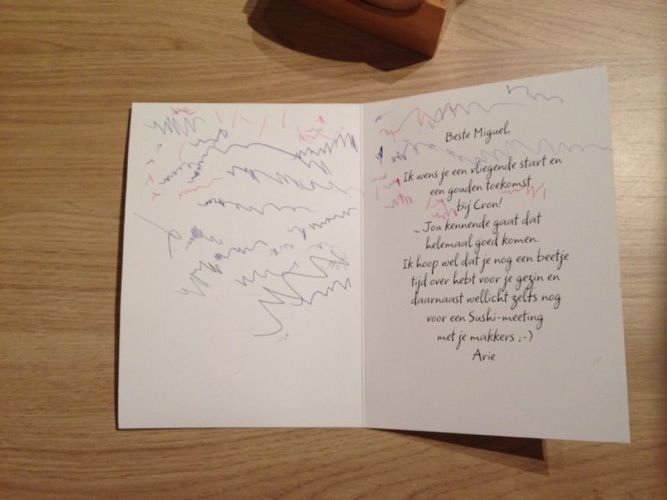 Beste Miguel,
Ik wens je een vliegende start en
een gouden toekomst
bij Cron!
Jou kennende gaat dat
helemaal goed komen.
Ik hoop wel dat je nog een beetje
tijd over hebt voor je gezin en
daarnaast wellicht zelfs nog
voor een Sushi-meeting
met je makkers ;-)
Arie